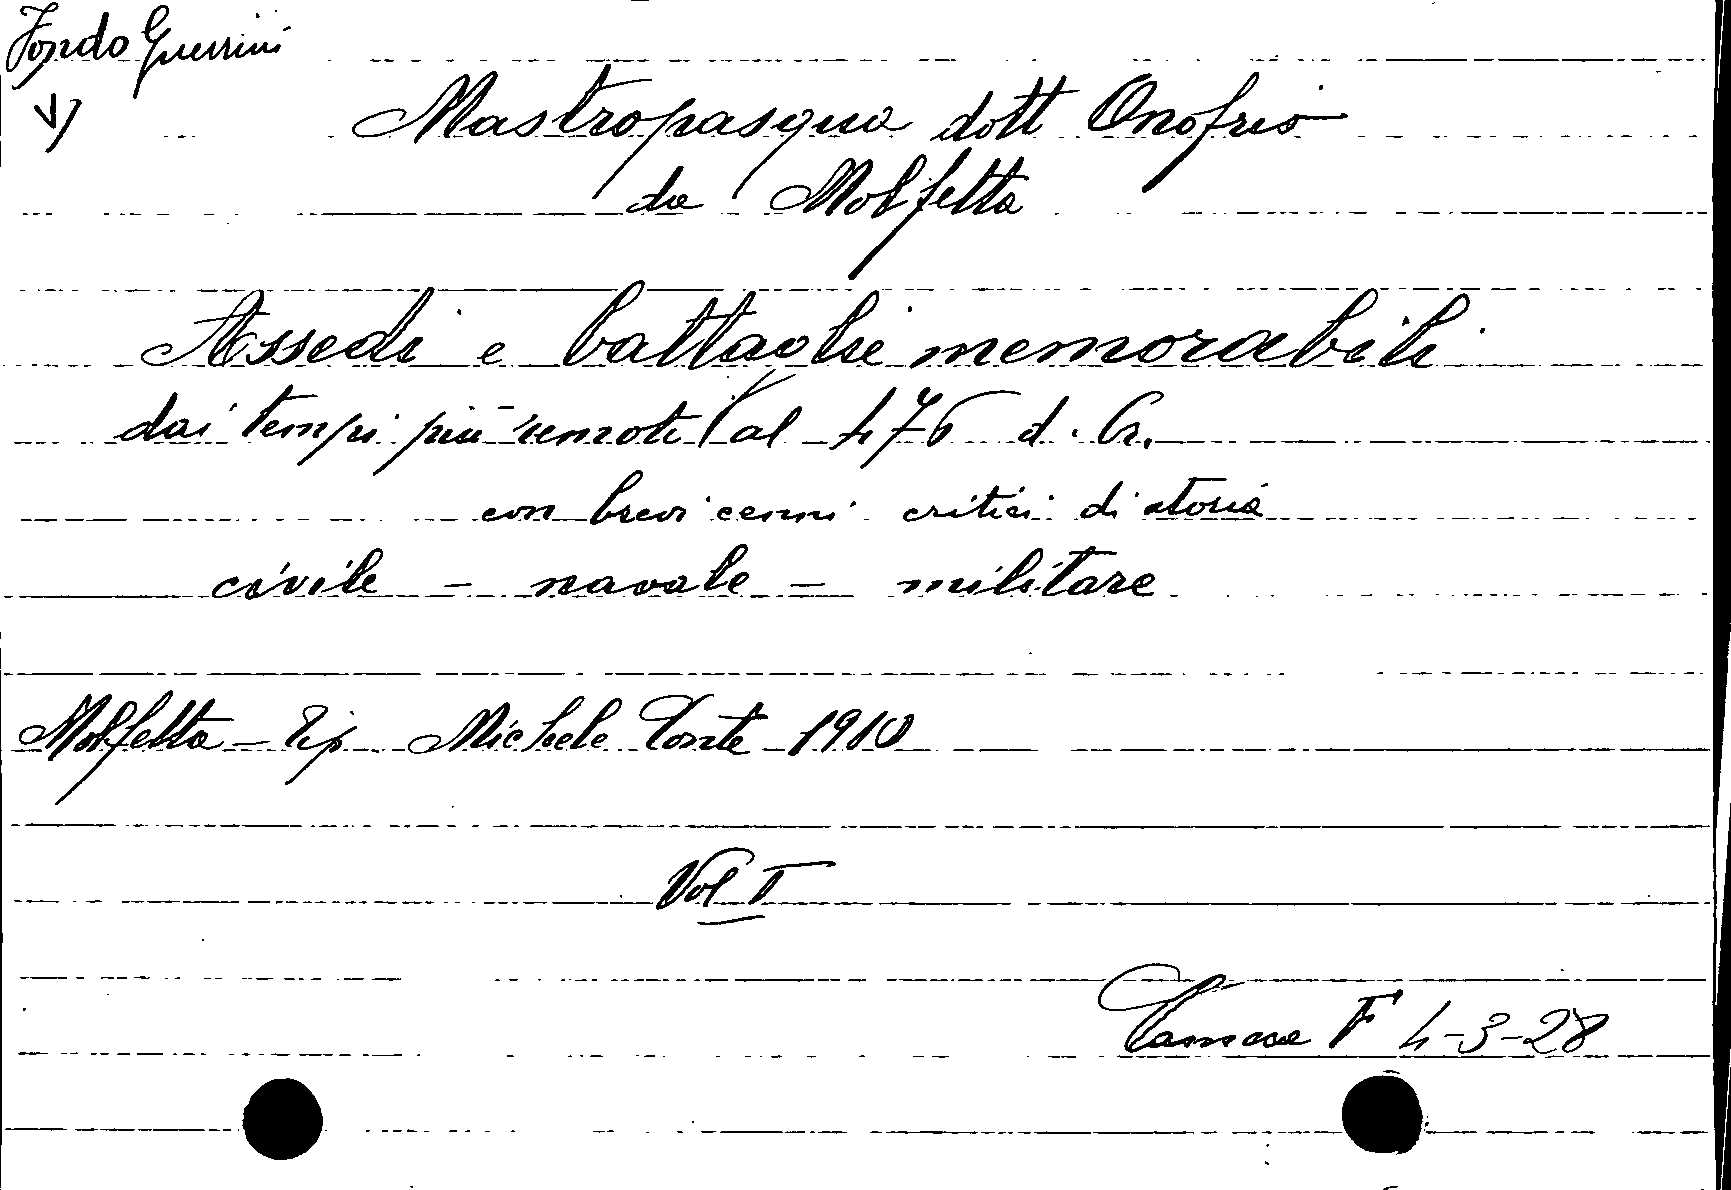 Fondo Guerrini
V)
Mastropasqua dott Onofrio
da Molfetta
Assedi e battaglie memorabili
dai tempi più remoti al 476 d. Cr.
con brevi cenni critici di storia
civile - navale - militare
Molfetta - Tip Michele Conte 1910
Vol I
Camera F 4-3-28